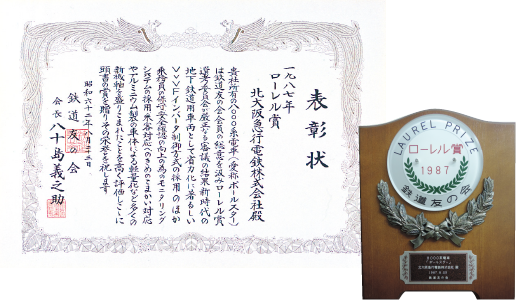 表彰状
一九八七年
ローレル賞
北大阪急行電鉄株式会社殿
貴社所有の8000系電車(愛称ポールスター)
は鉄道友の会会員の総意を汲みローレル賞
選考委員会が厳正なる審議の結果新時代の
地下鉄道用車両として省力化に著るしい
VVVFインバータ制御方式の採用のほか
乗務員の保守安全確認の向上の為のモニタリング
システムの採用乗客対応へのきめこまかい対応
やアルミニウム製の車体による軽量化など多くの
新機軸を盛りこまれたことを高く評価しここに
頭書の賞を贈りその栄誉を祝します
昭和六十二年八月二十三日
鉄道友の会
会長 八十島義之助
LAUREL PRIZE
ローレル賞
1987
鉄道友の会
8000系電車
"ポールスター"
北大阪急行電鉄株式会社 殿
鉄道友の会